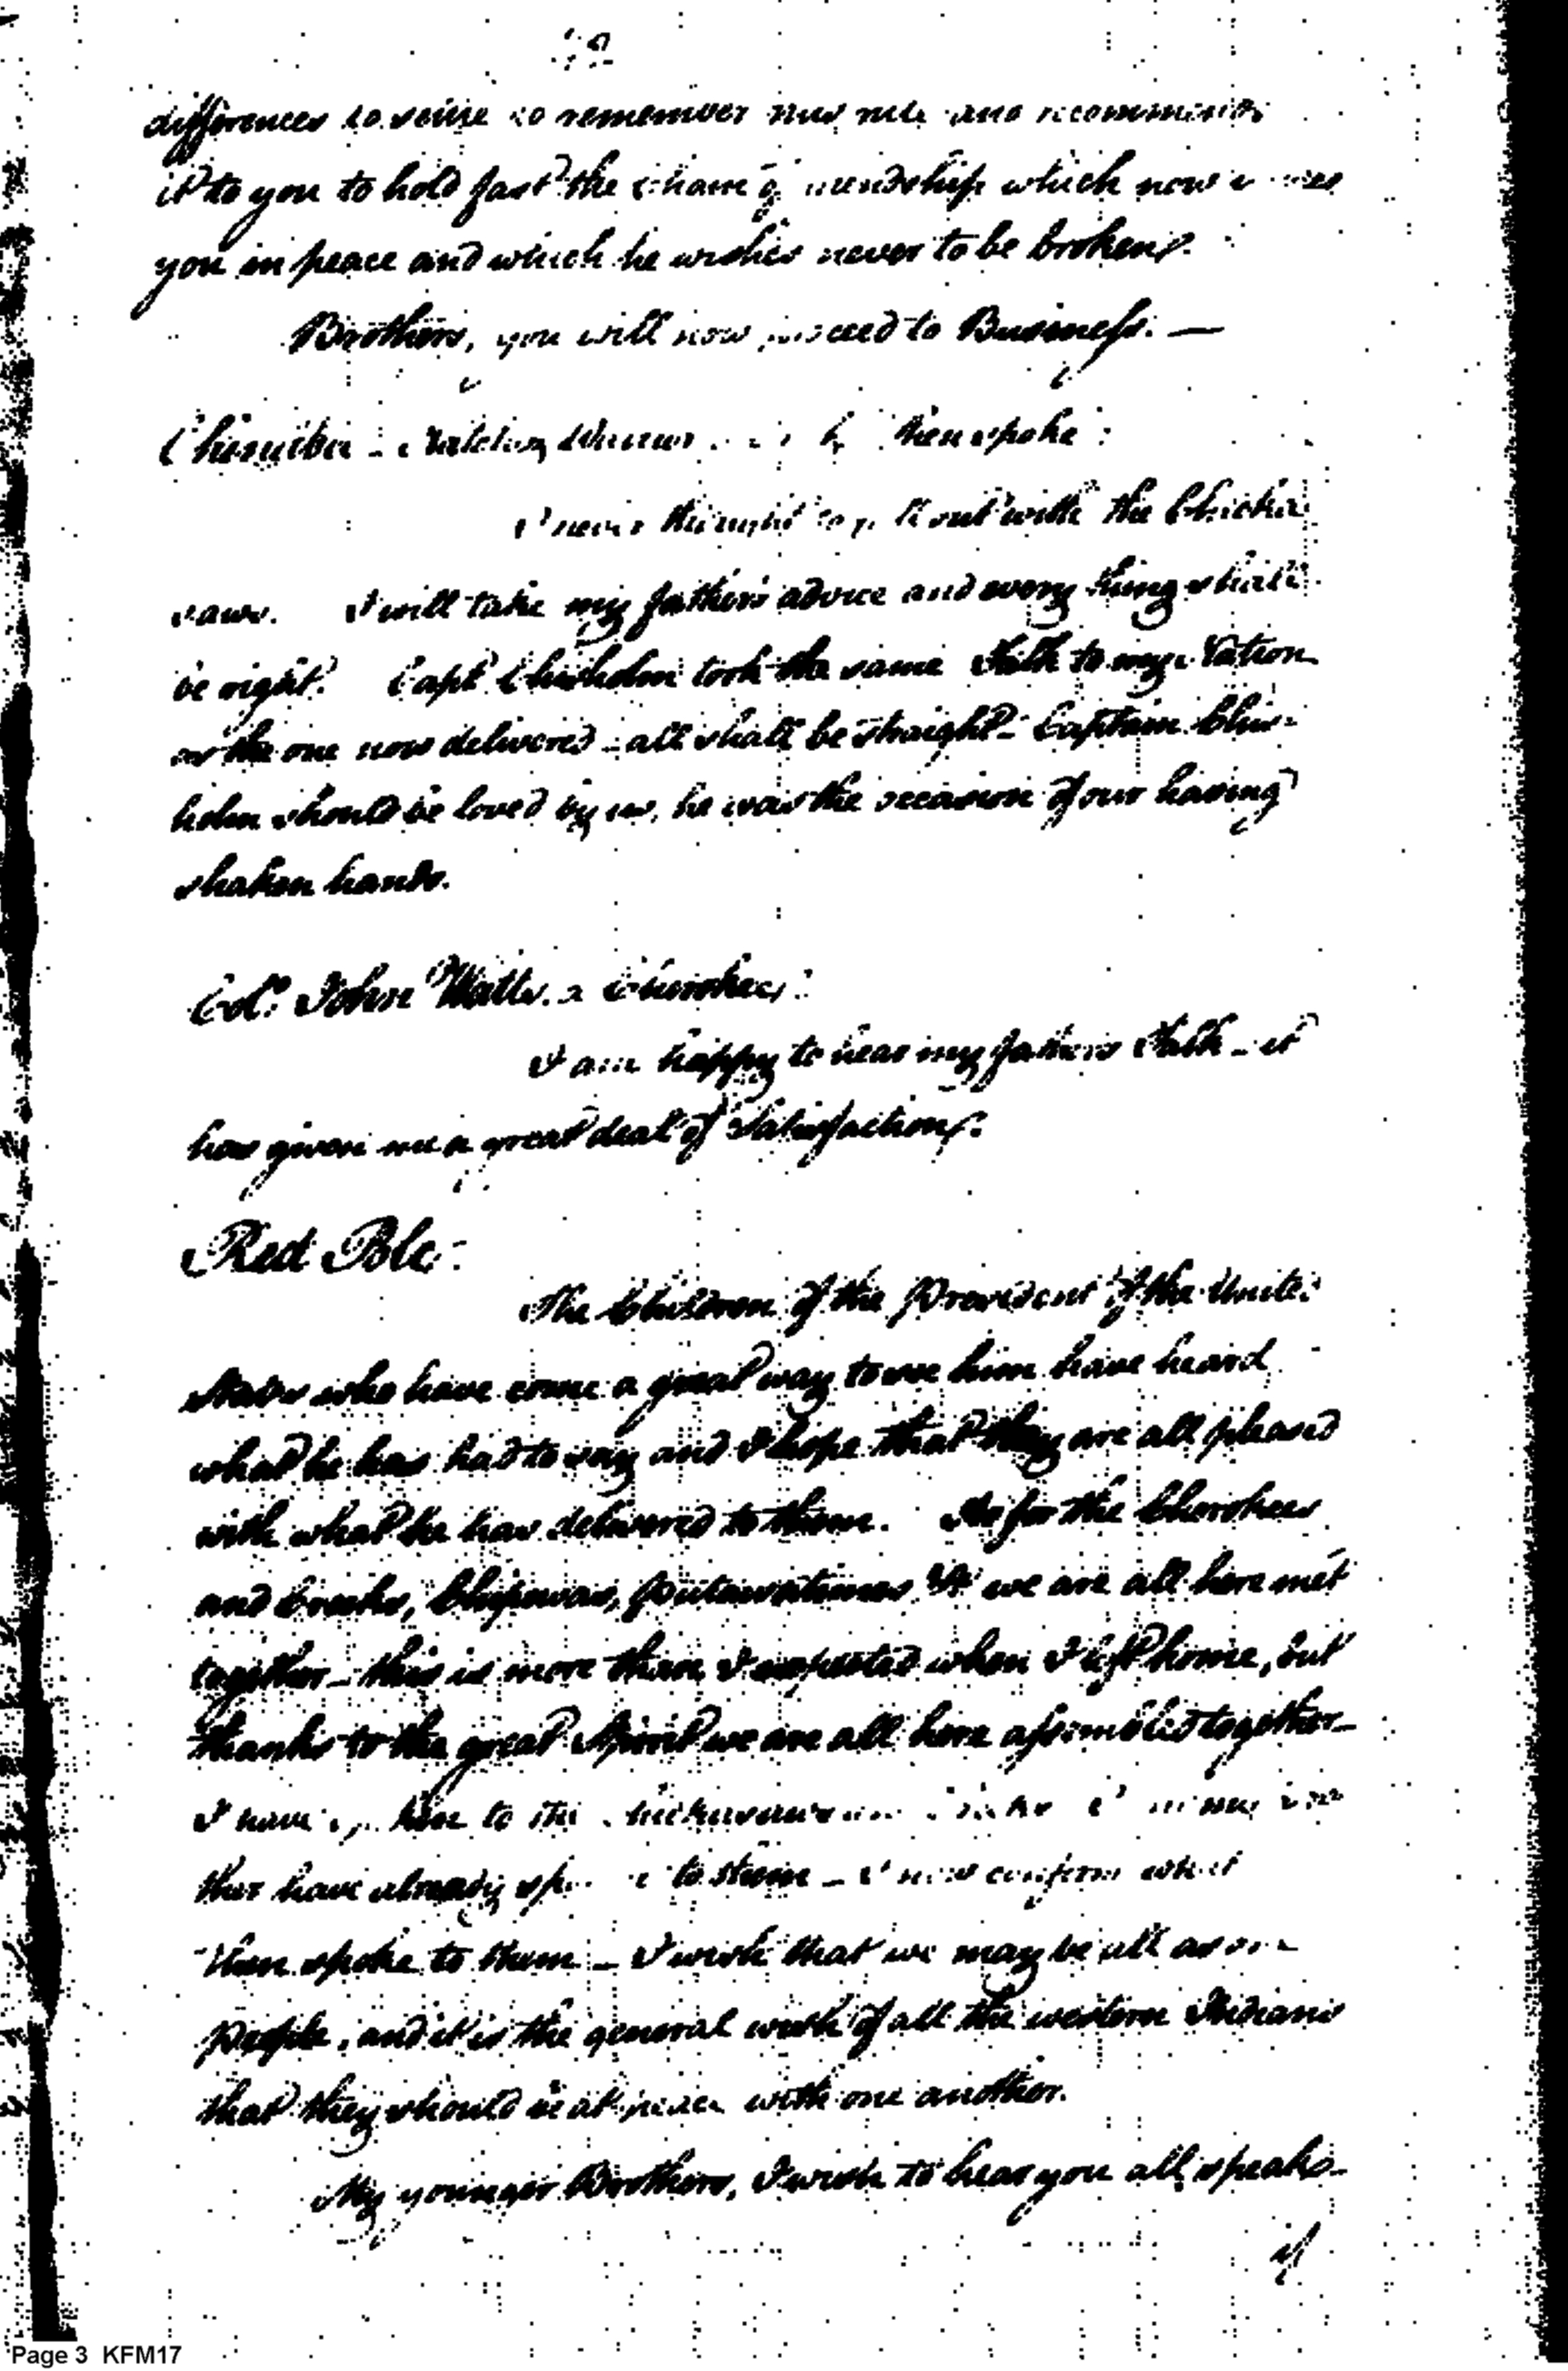 differences to seize to remember this rule and recommends
it to you to hold fast the chain of friendship which now unites
you in peace and which he wishes never to be broken.
Brothers, you will now proceed to Business. —
then spoke:
I never thought to fall out with the Chicka
saws. I will take my father's advice and every thing shall
be right. Capt. Chisholm took the same Talk to my Nation
as the one now delivered - all shall be straight - Captain Chis-
holm should be loved by us, he was the occasion of our having
shaken hands.
Col. John Watts. a Cherokee:
I am happy to hear my fathers Talk - it
has given me a great deal of Satisfaction.
Red Pole:
The Children of the President of the United
States who have come a great way to see him have heard
what he has had to say and I hope that they are all pleased
with what he has delivered to them. As for the Cherokees
and Creeks, Chipewas, Putawatimes &c we are all here met
together - this is more than I expected when I left home, but
thanks to the great Spirit we are all here assembled together -
I have spoken to the Chickasaws and
have already spoke to them - I now confirm what
then spoke to them - I wish that we may be all as one
People, and it is the general wish of all the western Indians
that they should be at peace with one another.
My younger Brothers, I wish to hear you all speak -
if
Page 3 KFM17